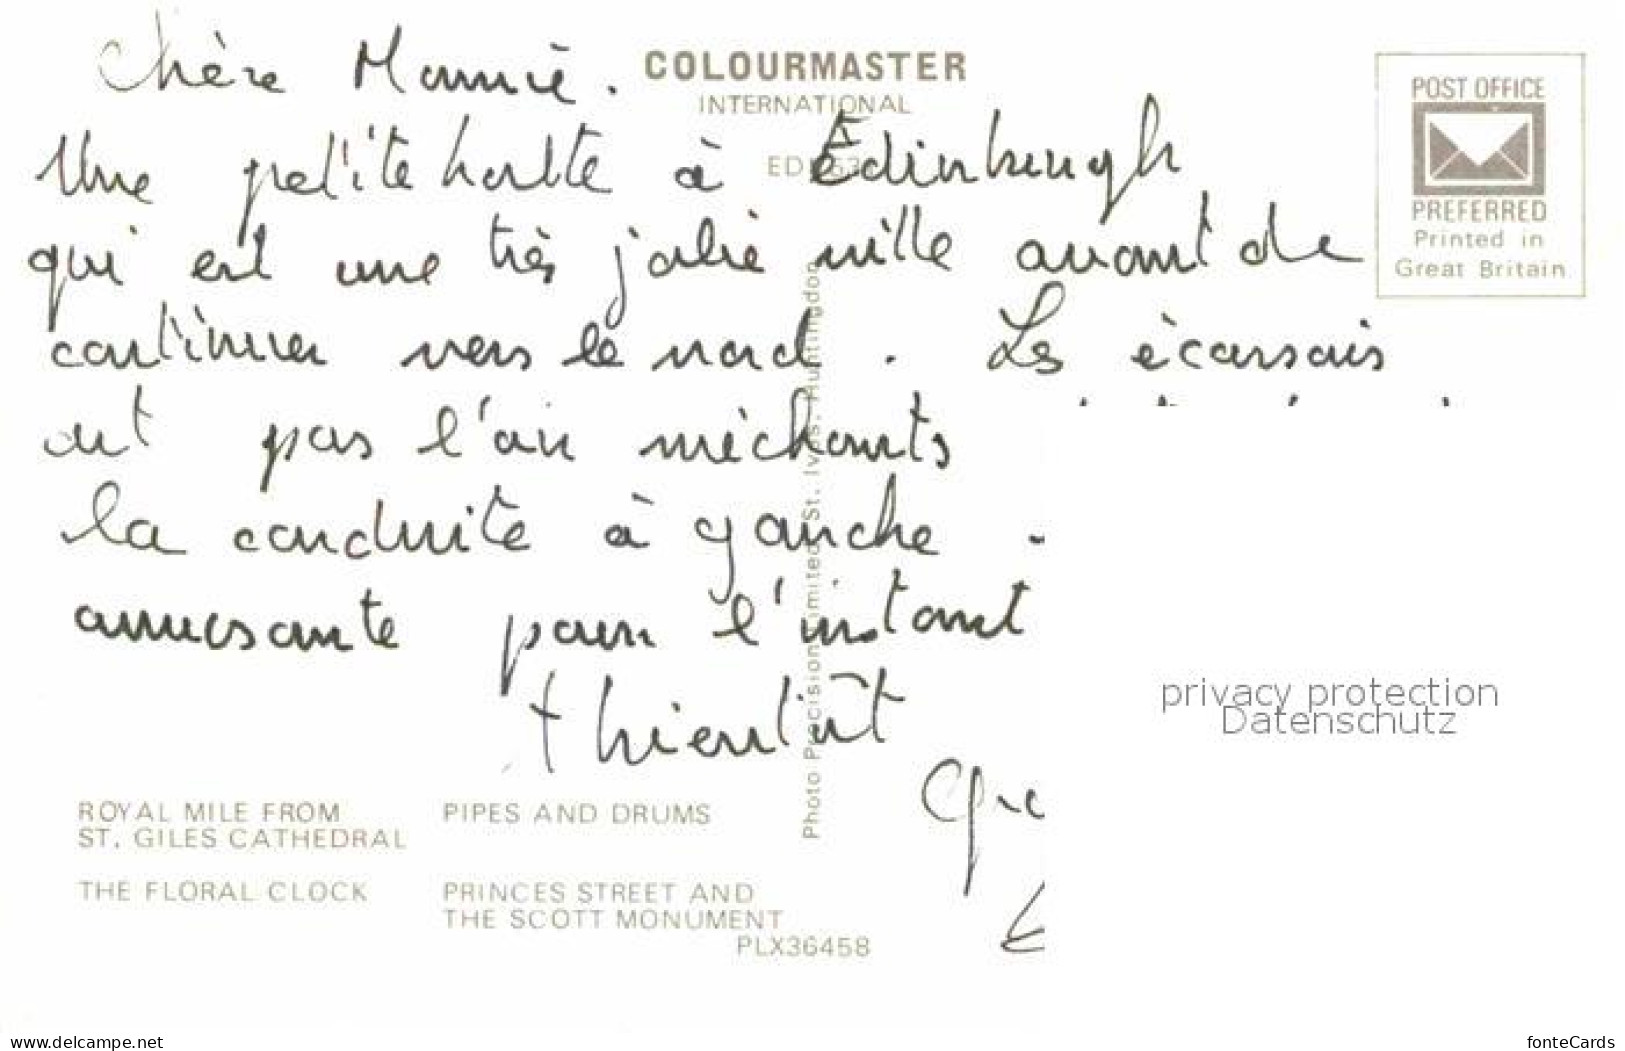 Chère Mamie.
Une petite halte à Edinburgh
qui est une très jolie ville avant de
continuer vers le nord. Les écossais
ont pas l'air méchants
la conduite à gauche.
amusante pour l'instant
bientôt
COLOURMASTER
INTERNATIONAL
POST OFFICE
PREFERRED
Printed in
Great Britain
Photo Precision Limited, St. Ives, Huntingdon
privacy protection
Datenschutz
ROYAL MILE FROM
ST. GILES CATHEDRAL
PIPES AND DRUMS
THE FLORAL CLOCK
PRINCES STREET AND
THE SCOTT MONUMENT
PLX36458
www.delcampe.net
fonteCards